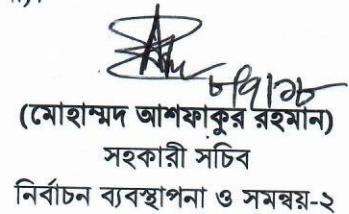 (মোহাম্মদ আশফাকুর রহমান)
সহকারী সচিব
নির্বাচন ব্যবস্থাপনা ও সমন্বয়-২